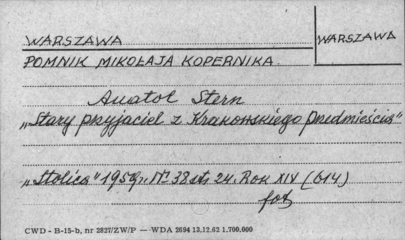 WARSZAWA
WARSZAWA
POMNIK MIKOŁAJA KOPERNIKA
Anatol Stern
„Stary przyjaciel z Krakowskiego Przedmieścia"
„Stolica" 1959r. Nr 38 str. 24. ROK XIV (614)
fot
CWD - B-15-b, nr 2827/ZW/P — WDA 2694 13.12.62 1.700.000